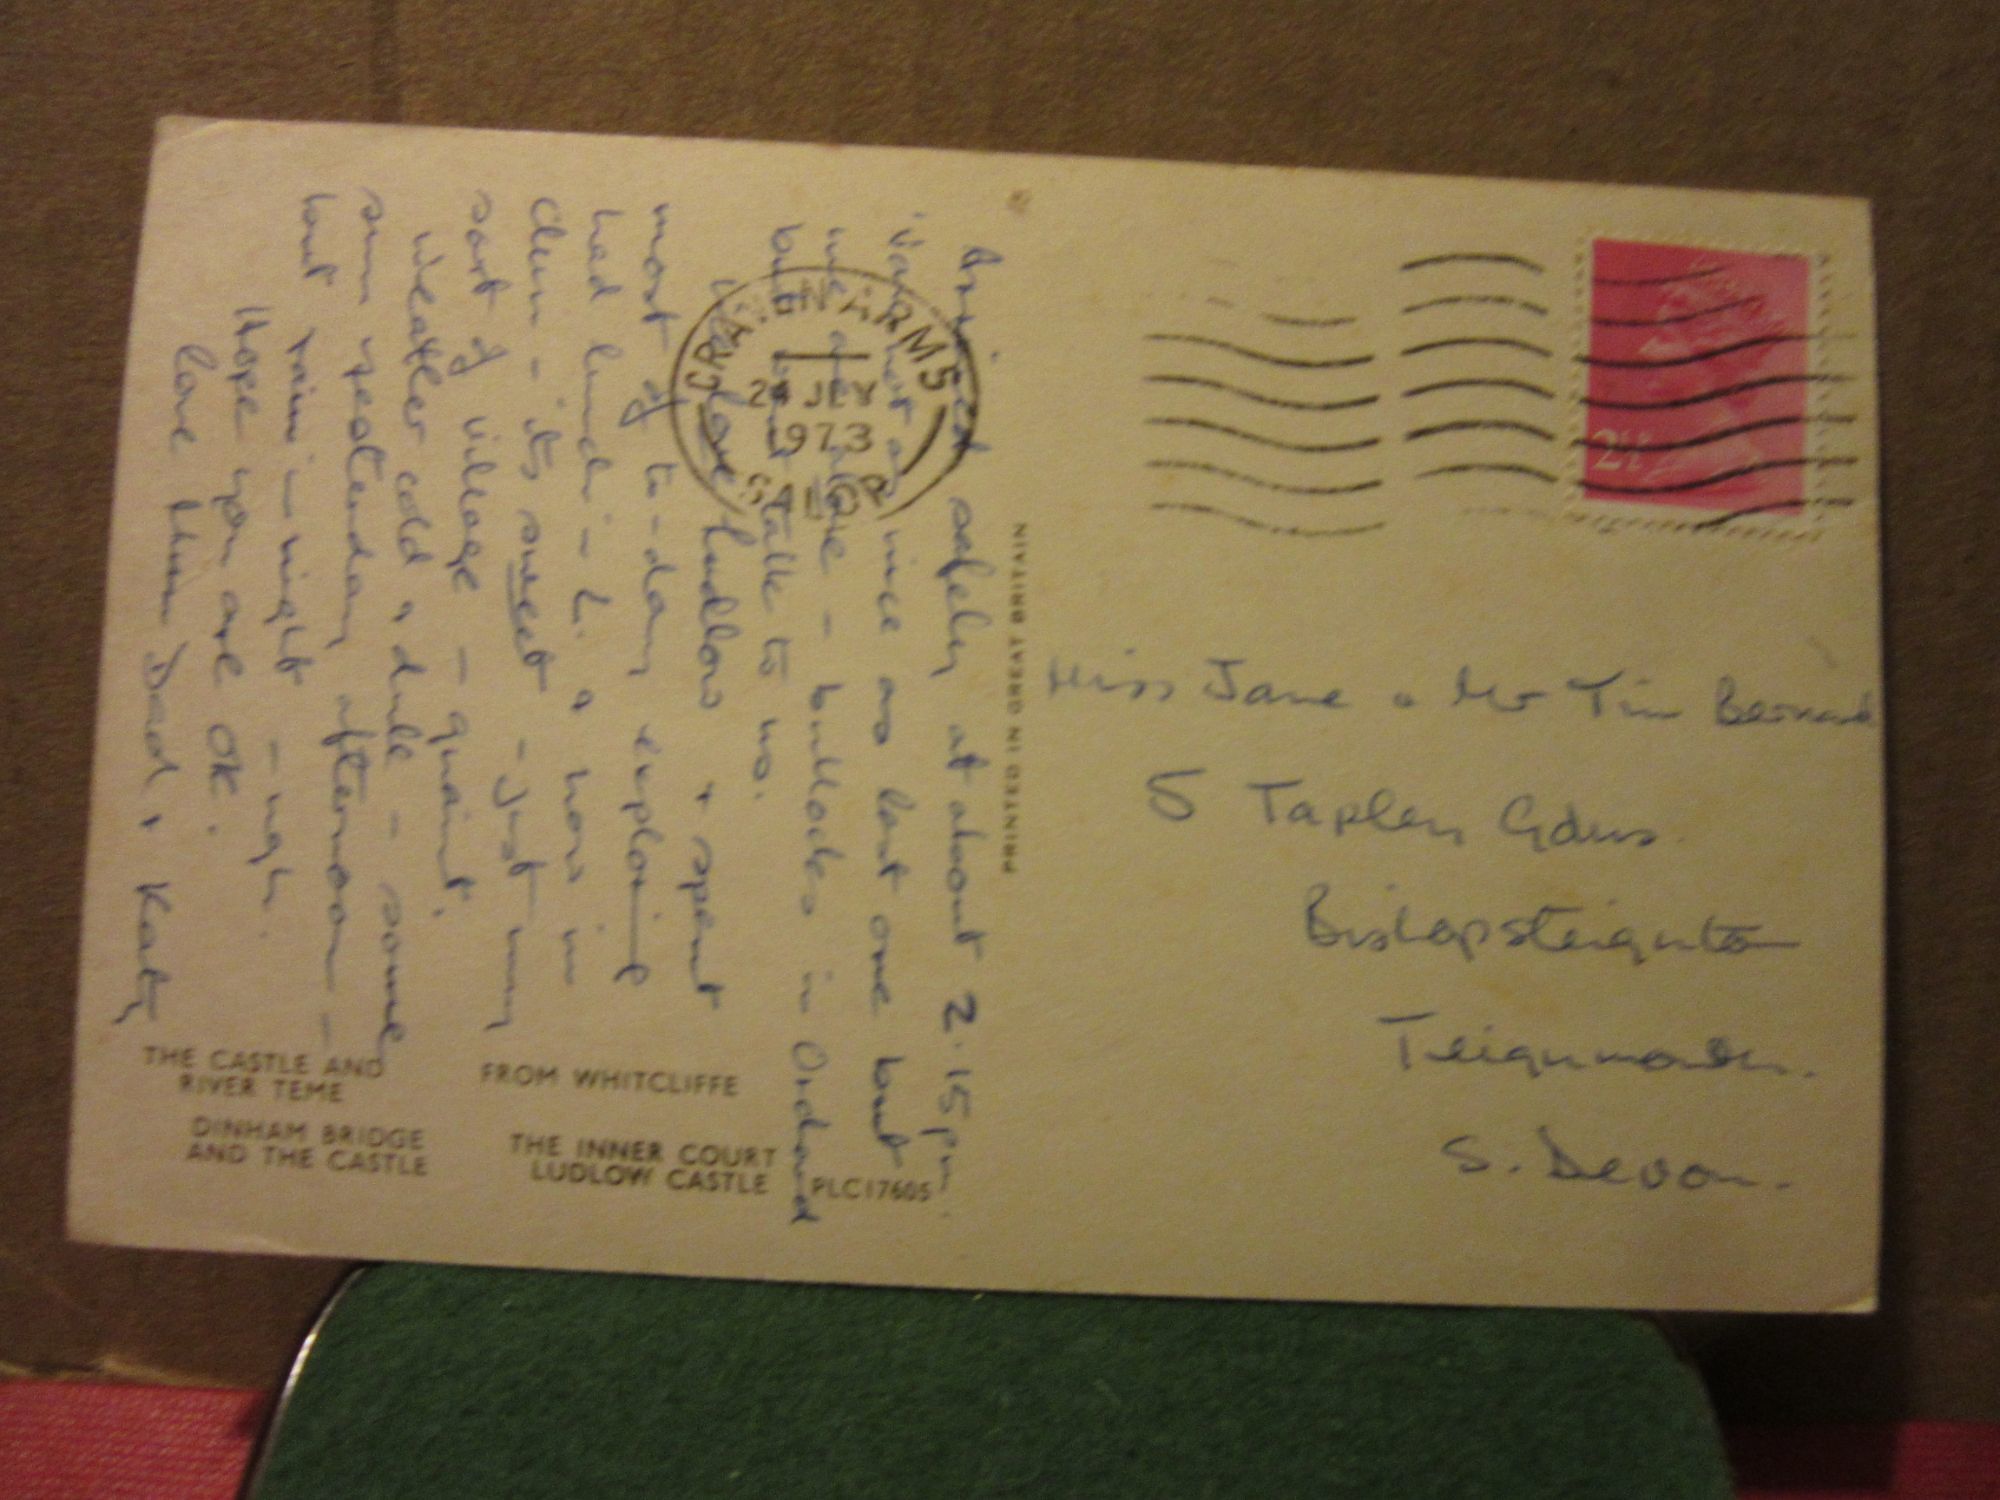 Arrived safely at about 2.15 pm.
Van not as nice as last one but
we are alone - bullocks in Orchard
but wont talk to us.
Explored Ludlow & spent
most of to-day exploring
had lunch in L. & now in
Clun - its sweet - just my
sort of village - quaint.
Weather cold & dull - some
sun yesterday afternoon -
but rain in night - ugh.
Hope you are OK.
Love Mum Dad & Katy
CRAVEN ARMS
JLY
1973
SALOP
PRINTED IN GREAT BRITAIN
2½
Miss Jane & Mr Tim Bernard
5 Tapley Gdns.
Bishopsteignton
Teignmouth.
S. Devon.
THE CASTLE AND
RIVER TEME
FROM WHITCLIFFE
DINHAM BRIDGE
AND THE CASTLE
THE INNER COURT
LUDLOW CASTLE
PLC17605